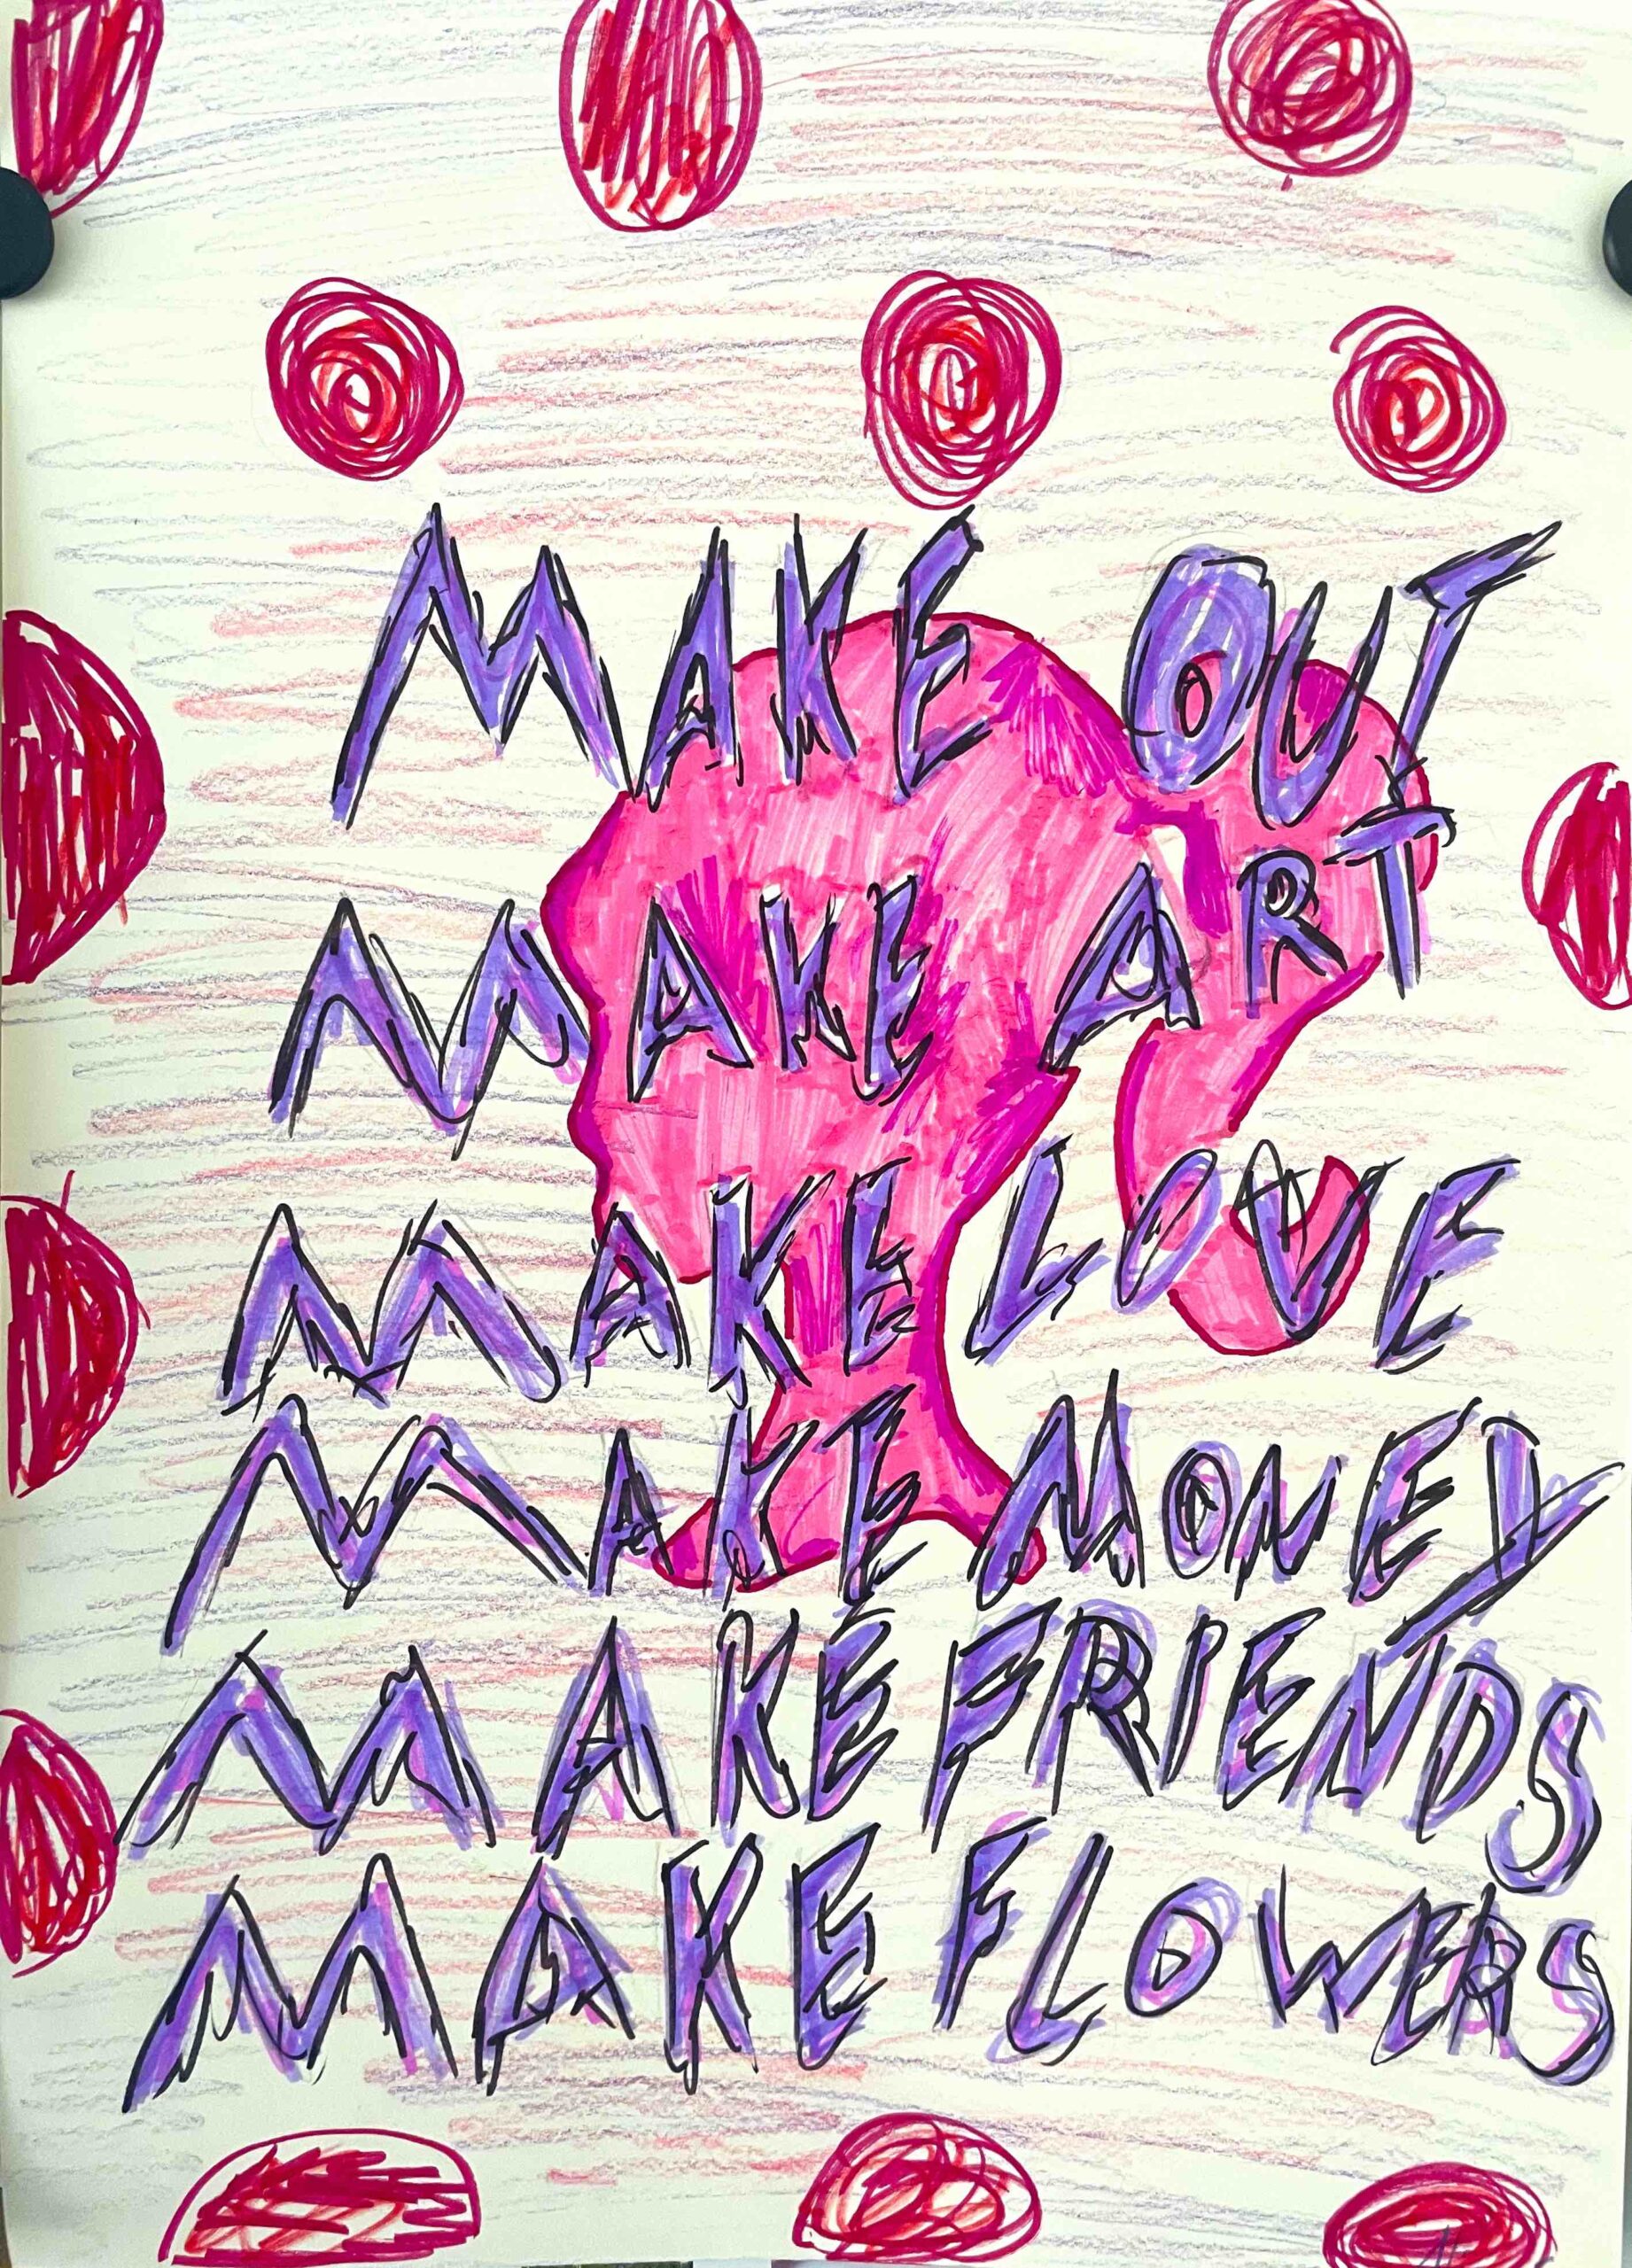 MAKE OUT
MAKE ART
MAKE LOVE
MAKE MONEY
MAKE FRIENDS
MAKE FLOWERS